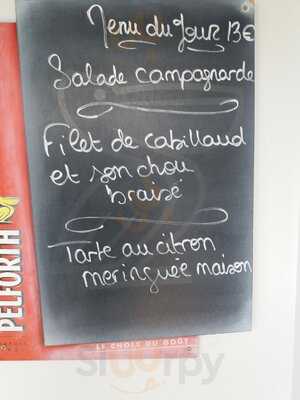 Menu du Jour 13€
Salade campagnarde
Filet de cabillaud
et son chou
braisé
Tarte au citron
meringuée maison
PELFORTH
LE CHOIX DU GOÛT
Sluurpy